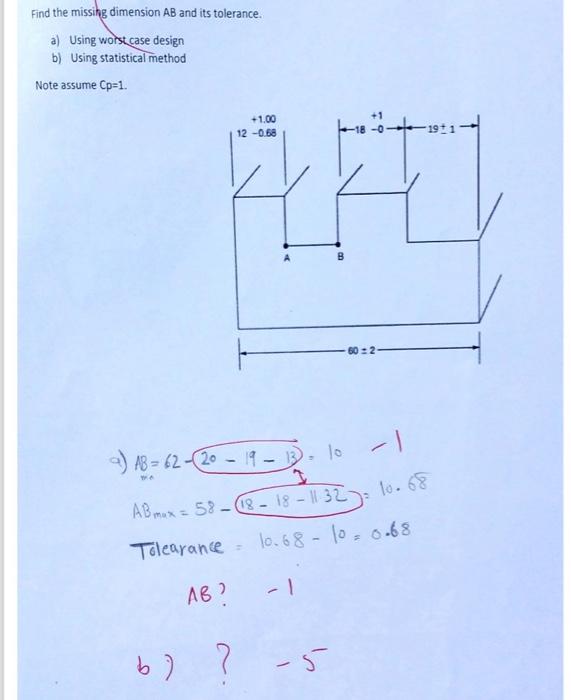 Find the missing dimension AB and its tolerance.
a) Using worst case design
b) Using statistical method
Note assume Cp=1.
+1.00
12 -0.68
+1
18 -0
19 ± 1
A
B
60 ± 2
a) AB = 62 - 20 - 19 - 13 = 10 -1
AB max = 58 - 18 - 18 - 11.32 = 10.68
Tolearance = 10.68 - 10 = 0.68
AB? -1
b) ? -5